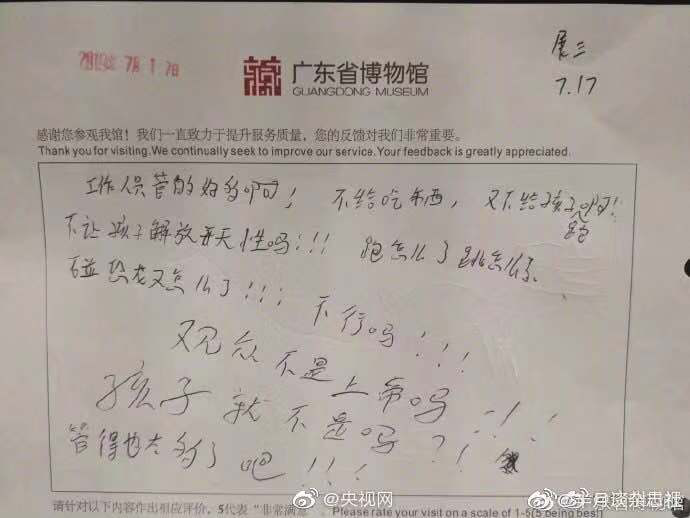 展三
7.17
广东省博物馆
GUANGDONG MUSEUM
感谢您参观我馆！我们一直致力于提升服务质量，您的反馈对我们非常重要。
Thank you for visiting.We continually seek to improve our service.Your feedback is greatly appreciated.
工作人员管的好多啊！不给吃东西，又不给孩子跑啊！
不让孩子解放天性吗！！！跑怎么了跳怎么了
碰恐龙又怎么了！！！不行吗！！！
观众不是上帝吗！！！
孩子就不是吗？！！
管得也太多了吧！！！
请针对以下内容作出相应评价，5代表“非常满意
Please rate your visit on a scale of 1-5(5 being best)
@央视网